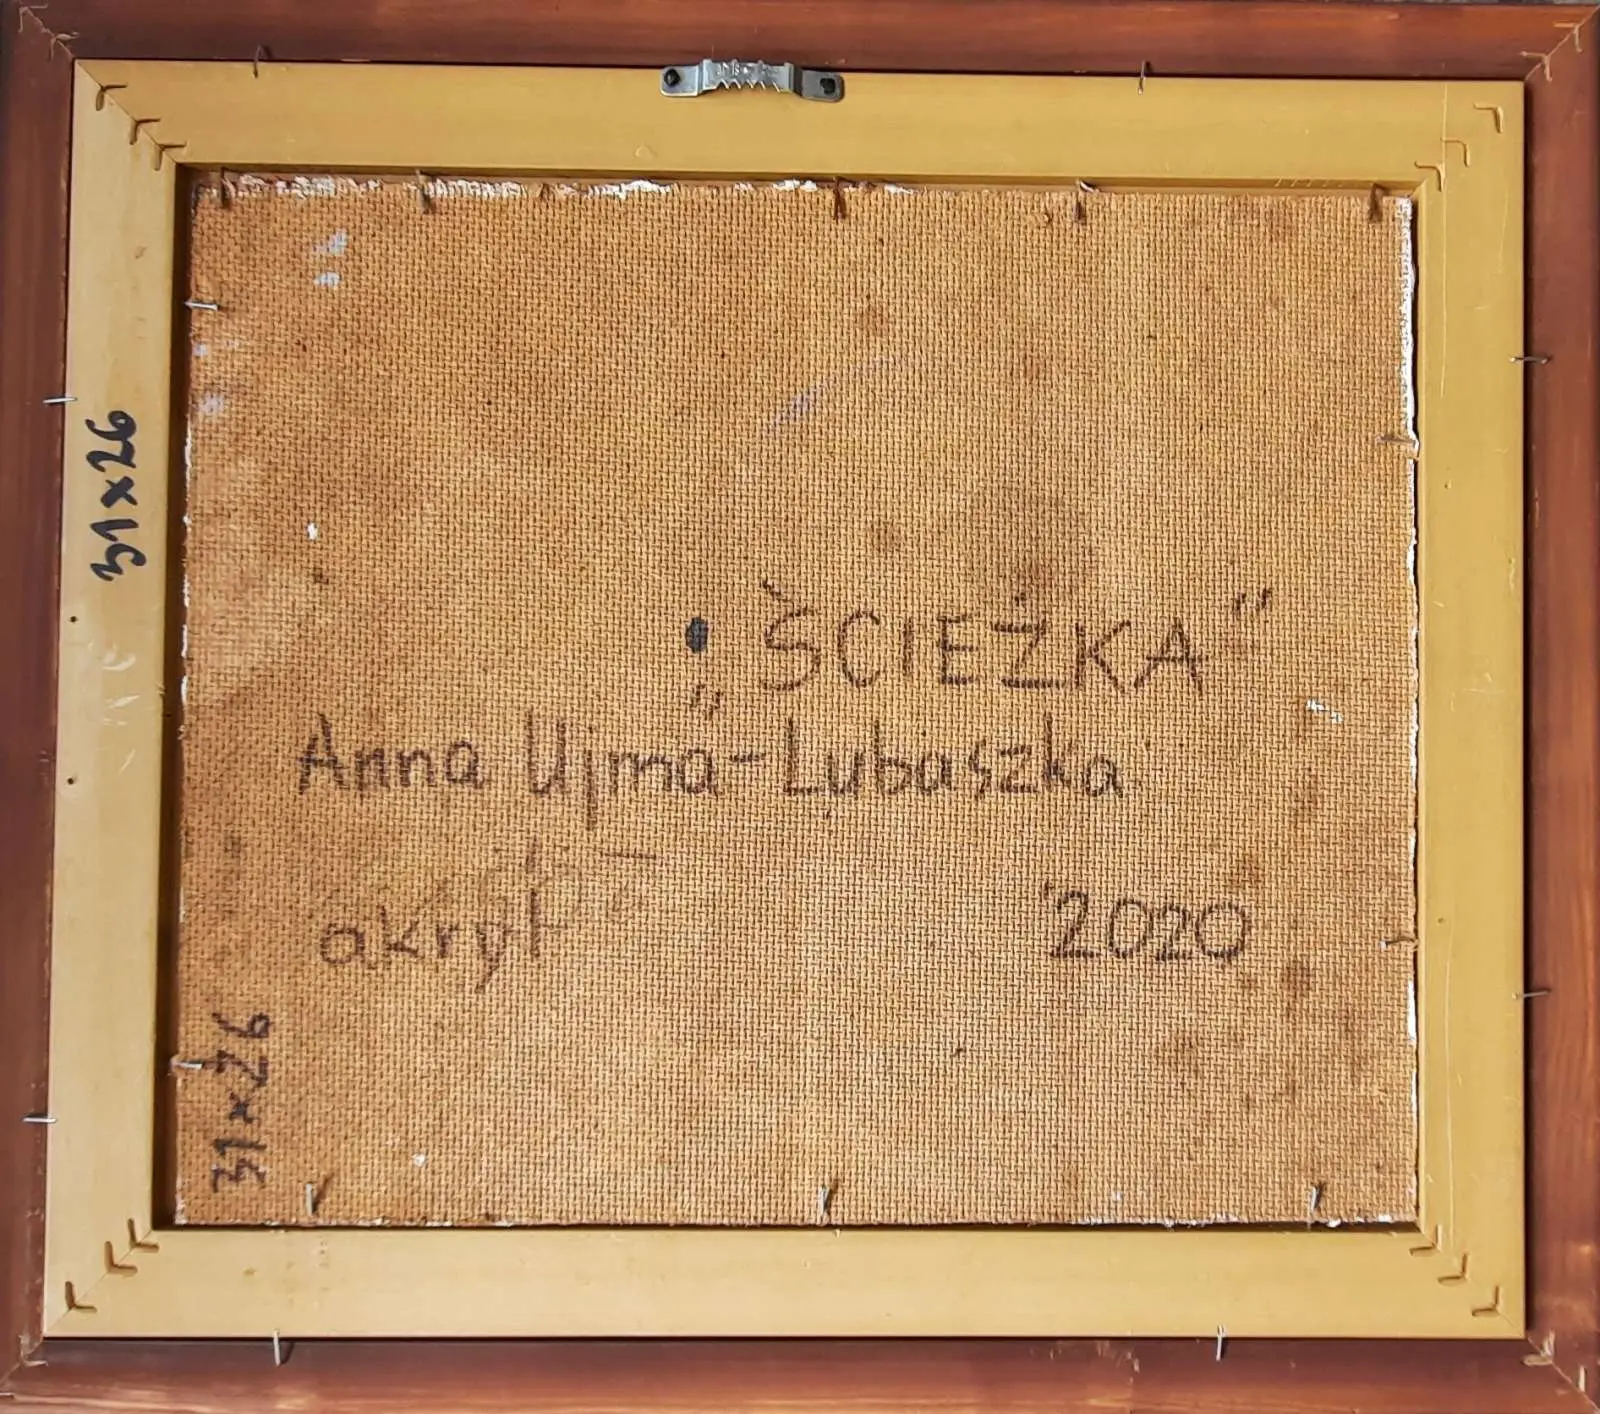 31x26
„ŚCIEŻKA"
Anna Ujma-Lubaszka
akryl 2020
31x26